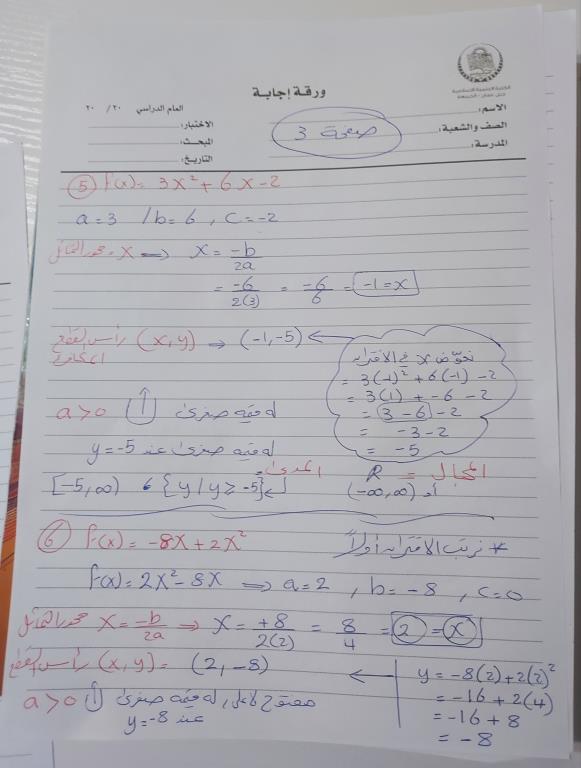 الكلية العلمية الإسلامية
جبل عمان - الجبيهة
ورقة إجابة
العام الدراسي ٢٠ / ٢٠
الاسم:
الاختبار:
الصف والشعبة:
صفحة 3
المبحث:
المدرسة:
التاريخ:
⑤ f(x) = 3x² + 6x - 2
a = 3 / b = 6 , c = -2
محور التماثل = x ⇒ x = -b/2a
= -6/2(3) = -6/6 = -1 = x
رأس القطع المكافئ (x,y) → (-1,-5) ←
نعوّض x في الاقتران
= 3(-1)² + 6(-1) - 2
= 3(1) + -6 - 2
= 3 - 6 - 2
= -3 - 2
= -5
a > 0 له قيمة صغرى
له قيمة صغرى عند y = -5
المجال = R
أو (-∞,∞)
المدى
{y / y ≥ -5} 6 [-5,∞)
⑥ f(x) = -8x + 2x²
* نرتب الاقتران أولاً
f(x) = 2x² - 8x ⇒ a = 2 , b = -8 , c = 0
محور التماثل x = -b/2a ⇒ x = +8/2(2) = 8/4 = 2 = x
رأس القطع (x,y) = (2,-8) ←
y = -8(2) + 2(2)²
= -16 + 2(4)
= -16 + 8
= -8
a > 0 مفتوح لأعلى, له قيمة صغرى
عند y = -8